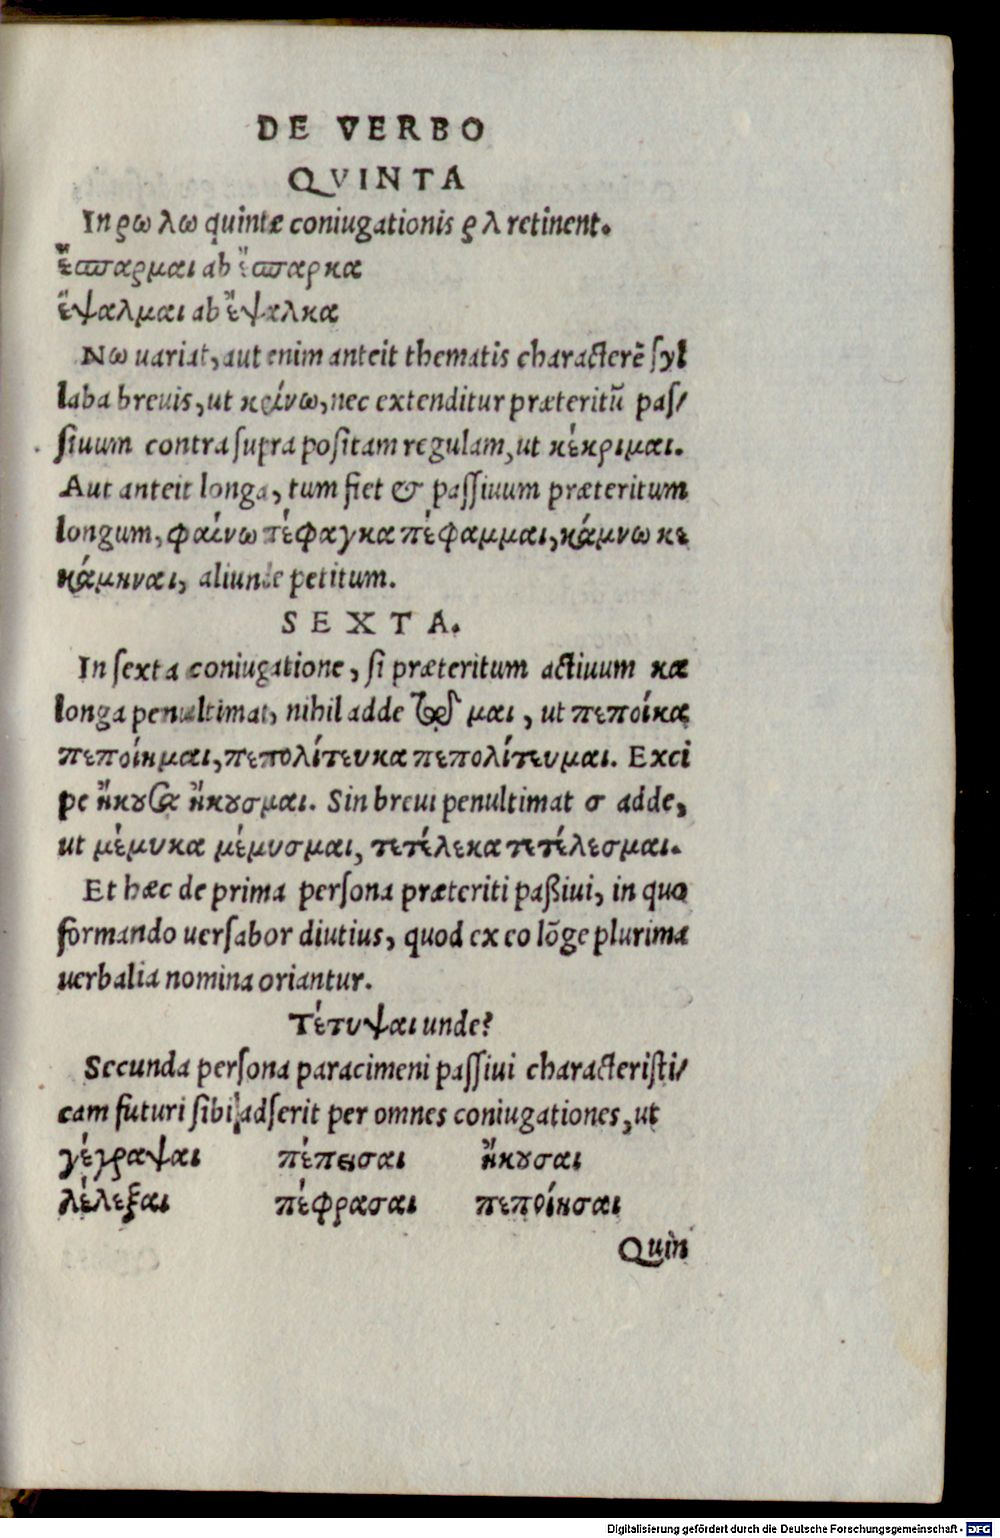 DE VERBO
QVINTA
In ρω λω quintæ coniugationis ρ λ retinent.
ἔσπαρμαι ab ἔσπαρκα
ἔψαλμαι ab ἔψαλκα
Νω uariat, aut enim anteit thematis characterē syl
laba breuis, ut κρίνω, nec extenditur præteritū pas/
siuum contra supra positam regulam, ut κέκριμαι.
Aut anteit longa, tum fiet & passiuum præteritum
longum, φαίνω πέφαγκα πέφαμμαι, κάμνω κε
κάμηναι, aliunde petitum.
SEXTA.
In sexta coniugatione, si præteritum actiuum κα
longa penultimat, nihil adde πρὸς μαι, ut πεποίκα
πεποίημαι, πεπολίτευκα πεπολίτευμαι. Exci
pe ἤκουκα ἤκουσμαι. Sin breui penultimat σ adde,
ut μέμυκα μέμυσμαι, τετέλεκα τετέλεσμαι.
Et hæc de prima persona præteriti paßiui, in quo
formando uersabor diutius, quod ex eo lōge plurima
uerbalia nomina oriantur.
Τέτυψαι unde?
Secunda persona paracimeni passiui characteristi/
cam futuri sibi adserit per omnes coniugationes, ut
γέγραψαι πέπεισαι ἤκουσαι
λέλεξαι πέφρασαι πεποίησαι
Quin
Digitalisierung gefördert durch die Deutsche Forschungsgemeinschaft - DFG